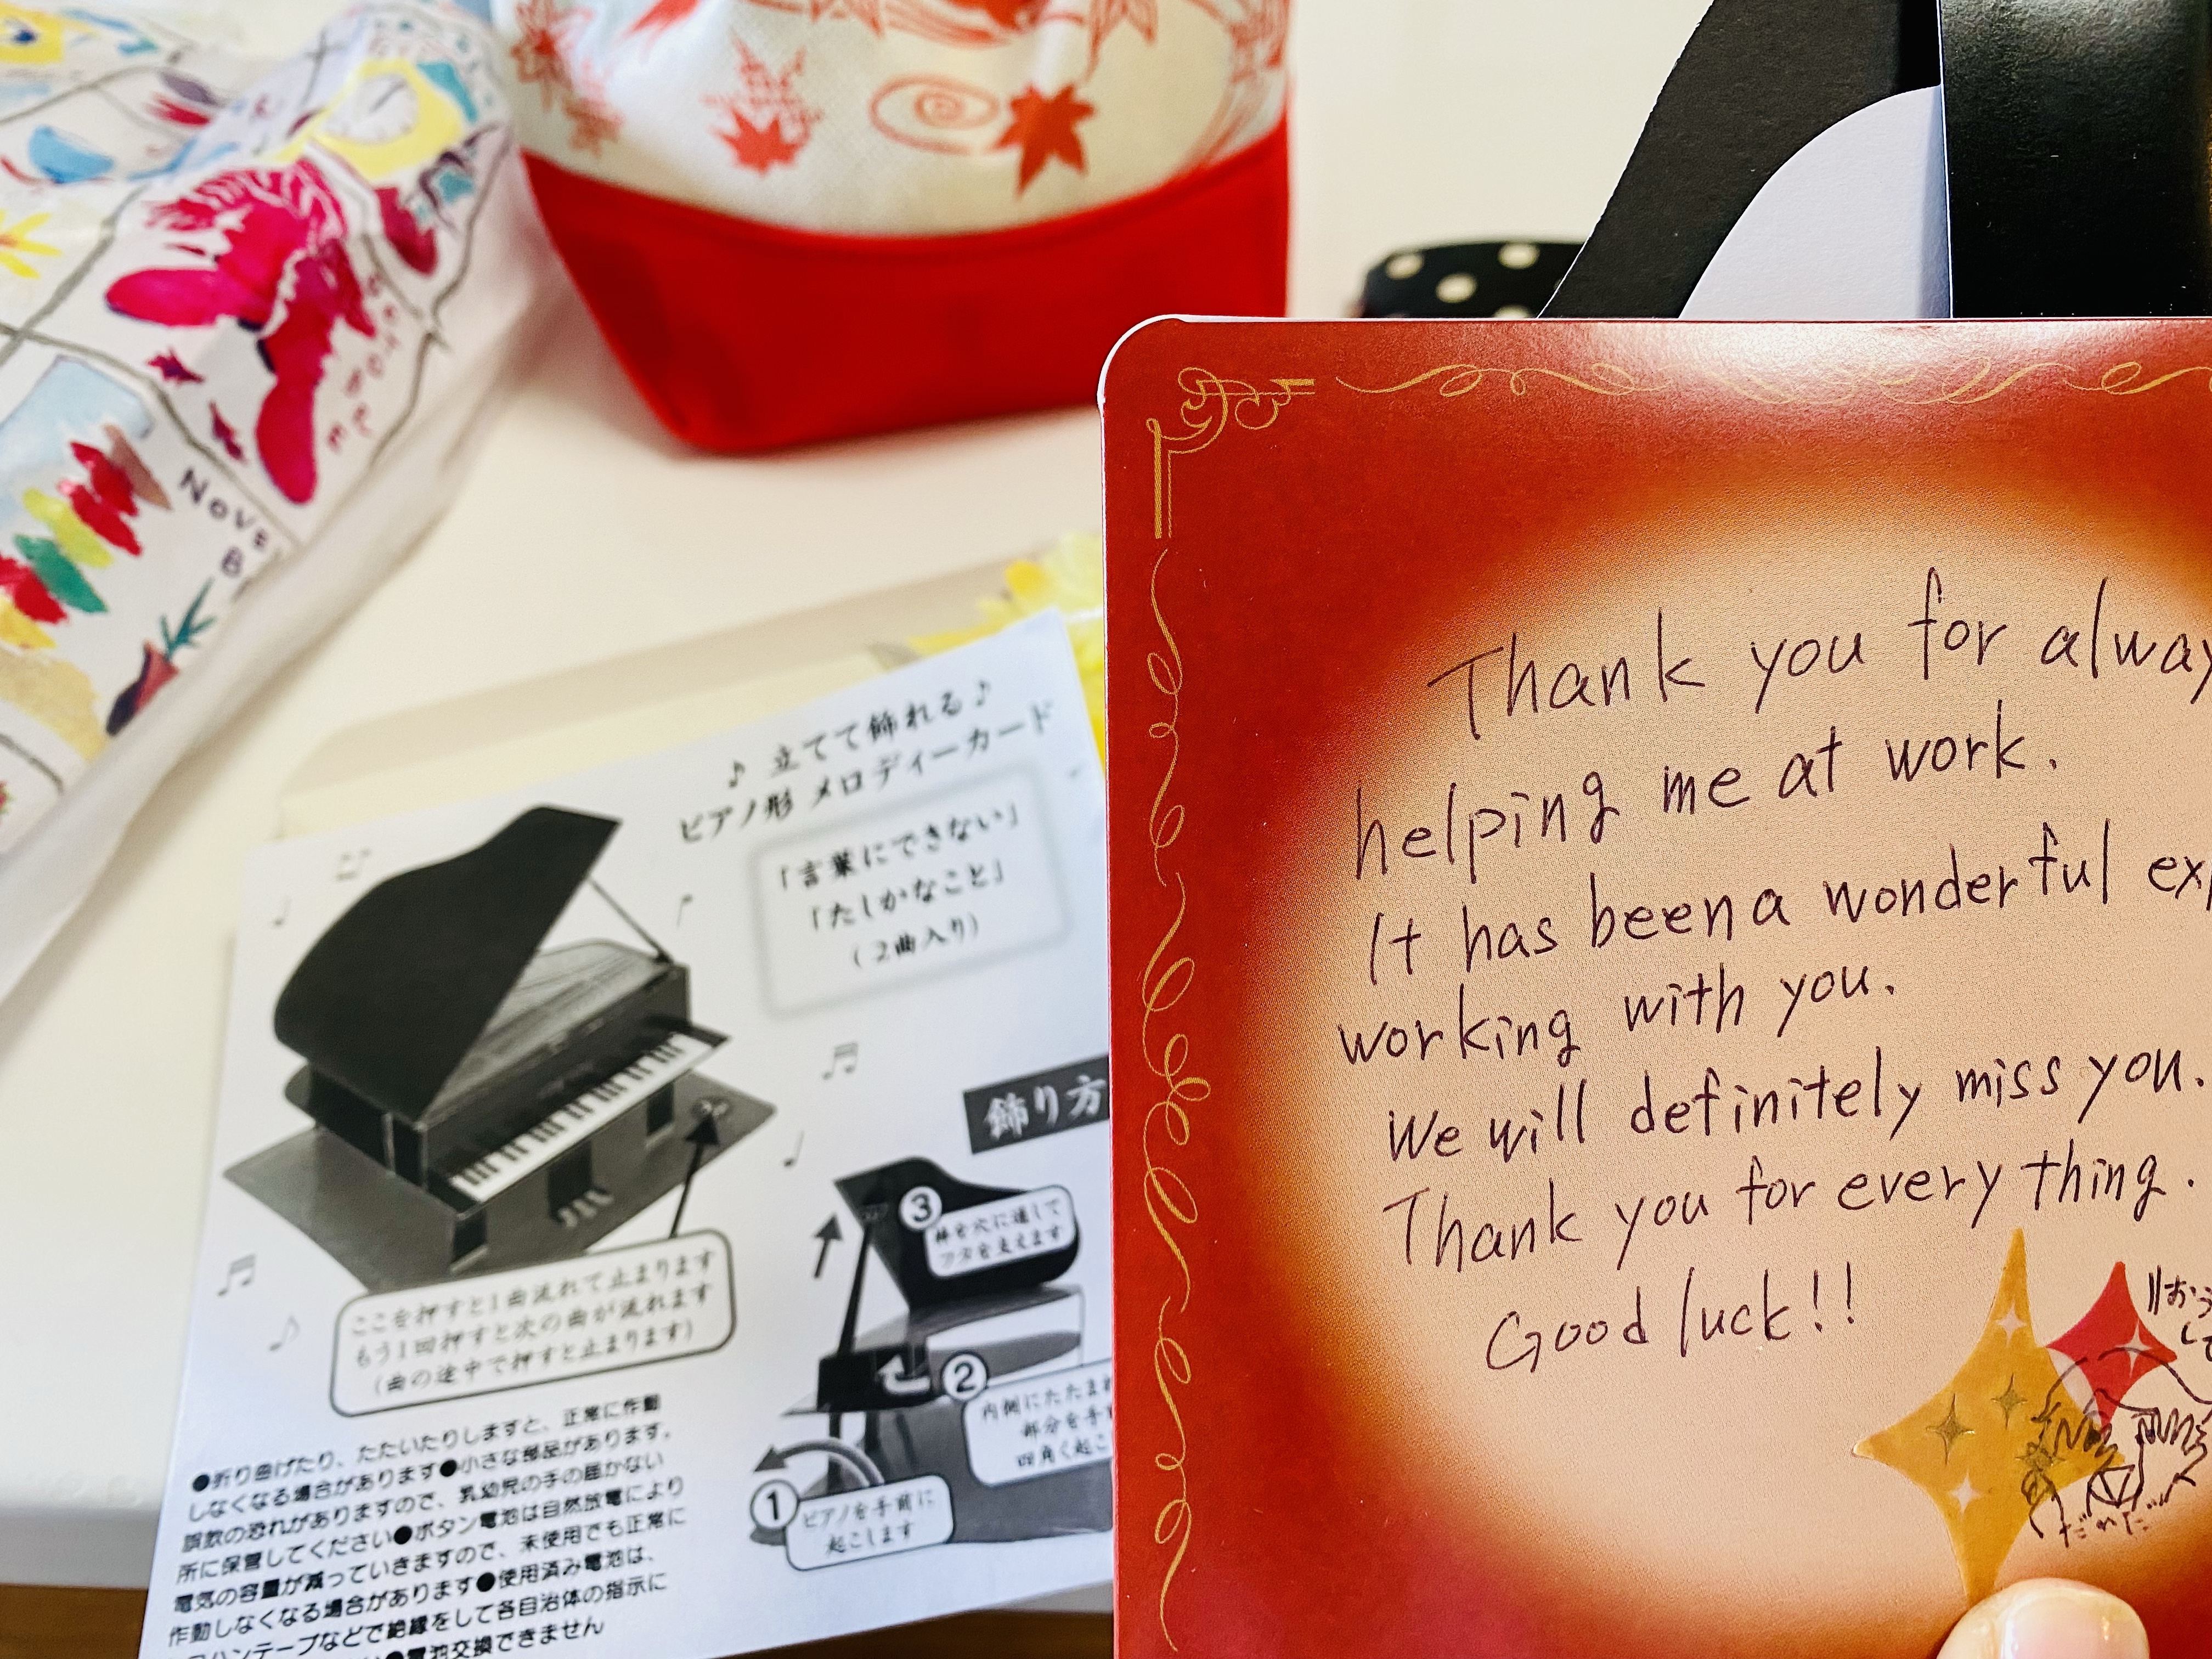 Nove
♪ 立てて飾れる♪
ピアノ形 メロディーカード
「言葉にできない」
「たしかなこと」
(2曲入り)
飾り方
ここを押すと1曲流れて止まります
もう1回押すと次の曲が流れます
(曲の途中で押すと止まります)
③
棒を穴に通して
フタを支えます
②
内側にたたまれ
部分を手
四角く起こ
①
ピアノを手前に
起こします
●折り曲げたり、たたいたりしますと、正常に作動
しなくなる場合があります●小さな部品があります。
誤飲の恐れがありますので、乳幼児の手の届かない
所に保管してください●ボタン電池は自然放電により
電気の容量が減っていきますので、未使用でも正常に
作動しなくなる場合があります●使用済み電池は、
ロハンテープなどで絶縁をして各自治体の指示に
●電池交換できません
Thank you for alway
helping me at work.
It has been a wonderful exp
working with you.
We will definitely miss you.
Thank you for every thing.
Good luck!!